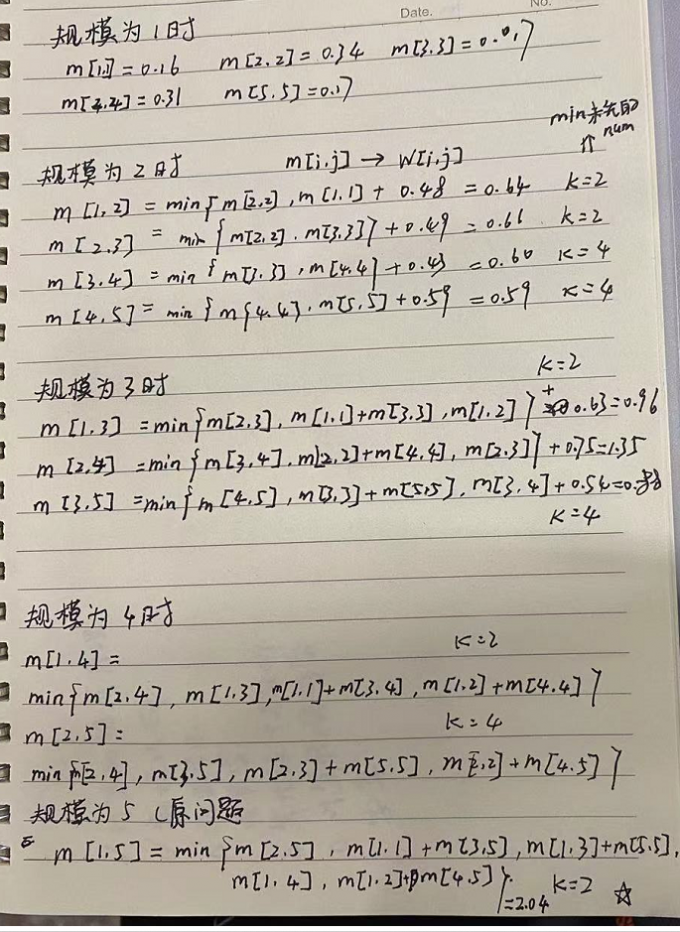 Date.
No.
规模为1时
m[1.1]=0.16 m[2,2]=0.34 m[3.3]=0.0,7
m[4.4]=0.31 m[5.5]=0.17
min未先取
num
规模为2时 m[i.j] → W[i,j]
m[1,2] = min{m[2,2], m[1.1] + 0.48 = 0.64 k=2
m[2,3] = min{m[2,2], m[3,3]}+0.49 = 0.66 k=2
m[3.4] = min{m[3.3], m[4,4]+0.43 = 0.60 k=4
m[4.5] = min{m{4.4}, m[5.5]+0.59 = 0.59 k=4
k=2
规模为3时
m[1.3] =min{m[2,3], m[1.1]+m[3.3], m[1.2]}+0.63=0.96
m[2,4] =min{m[3,4], m[2,2]+m[4,4], m[2.3]}+0.75=1.35
m[3,5] =min{m[4,5], m[3,3]+m[5,5], m[3.4]+0.54=0.88
k=4
规模为4时
m[1.4]= k=2
min{m[2,4], m[1.3], m[1.1]+m[3.4], m[1.2]+m[4.4]}
m[2,5]: k=4
min{m[2,4], m[3,5], m[2.3]+m[5.5], m[2,2]+m[4.5]}
规模为5 (原问题
m[1,5]=min{m[2,5], m[1.1]+m[3,5], m[1.3]+m[5.5],
m[1.4], m[1.2]+m[4.5]} =2.04 k=2 ☆